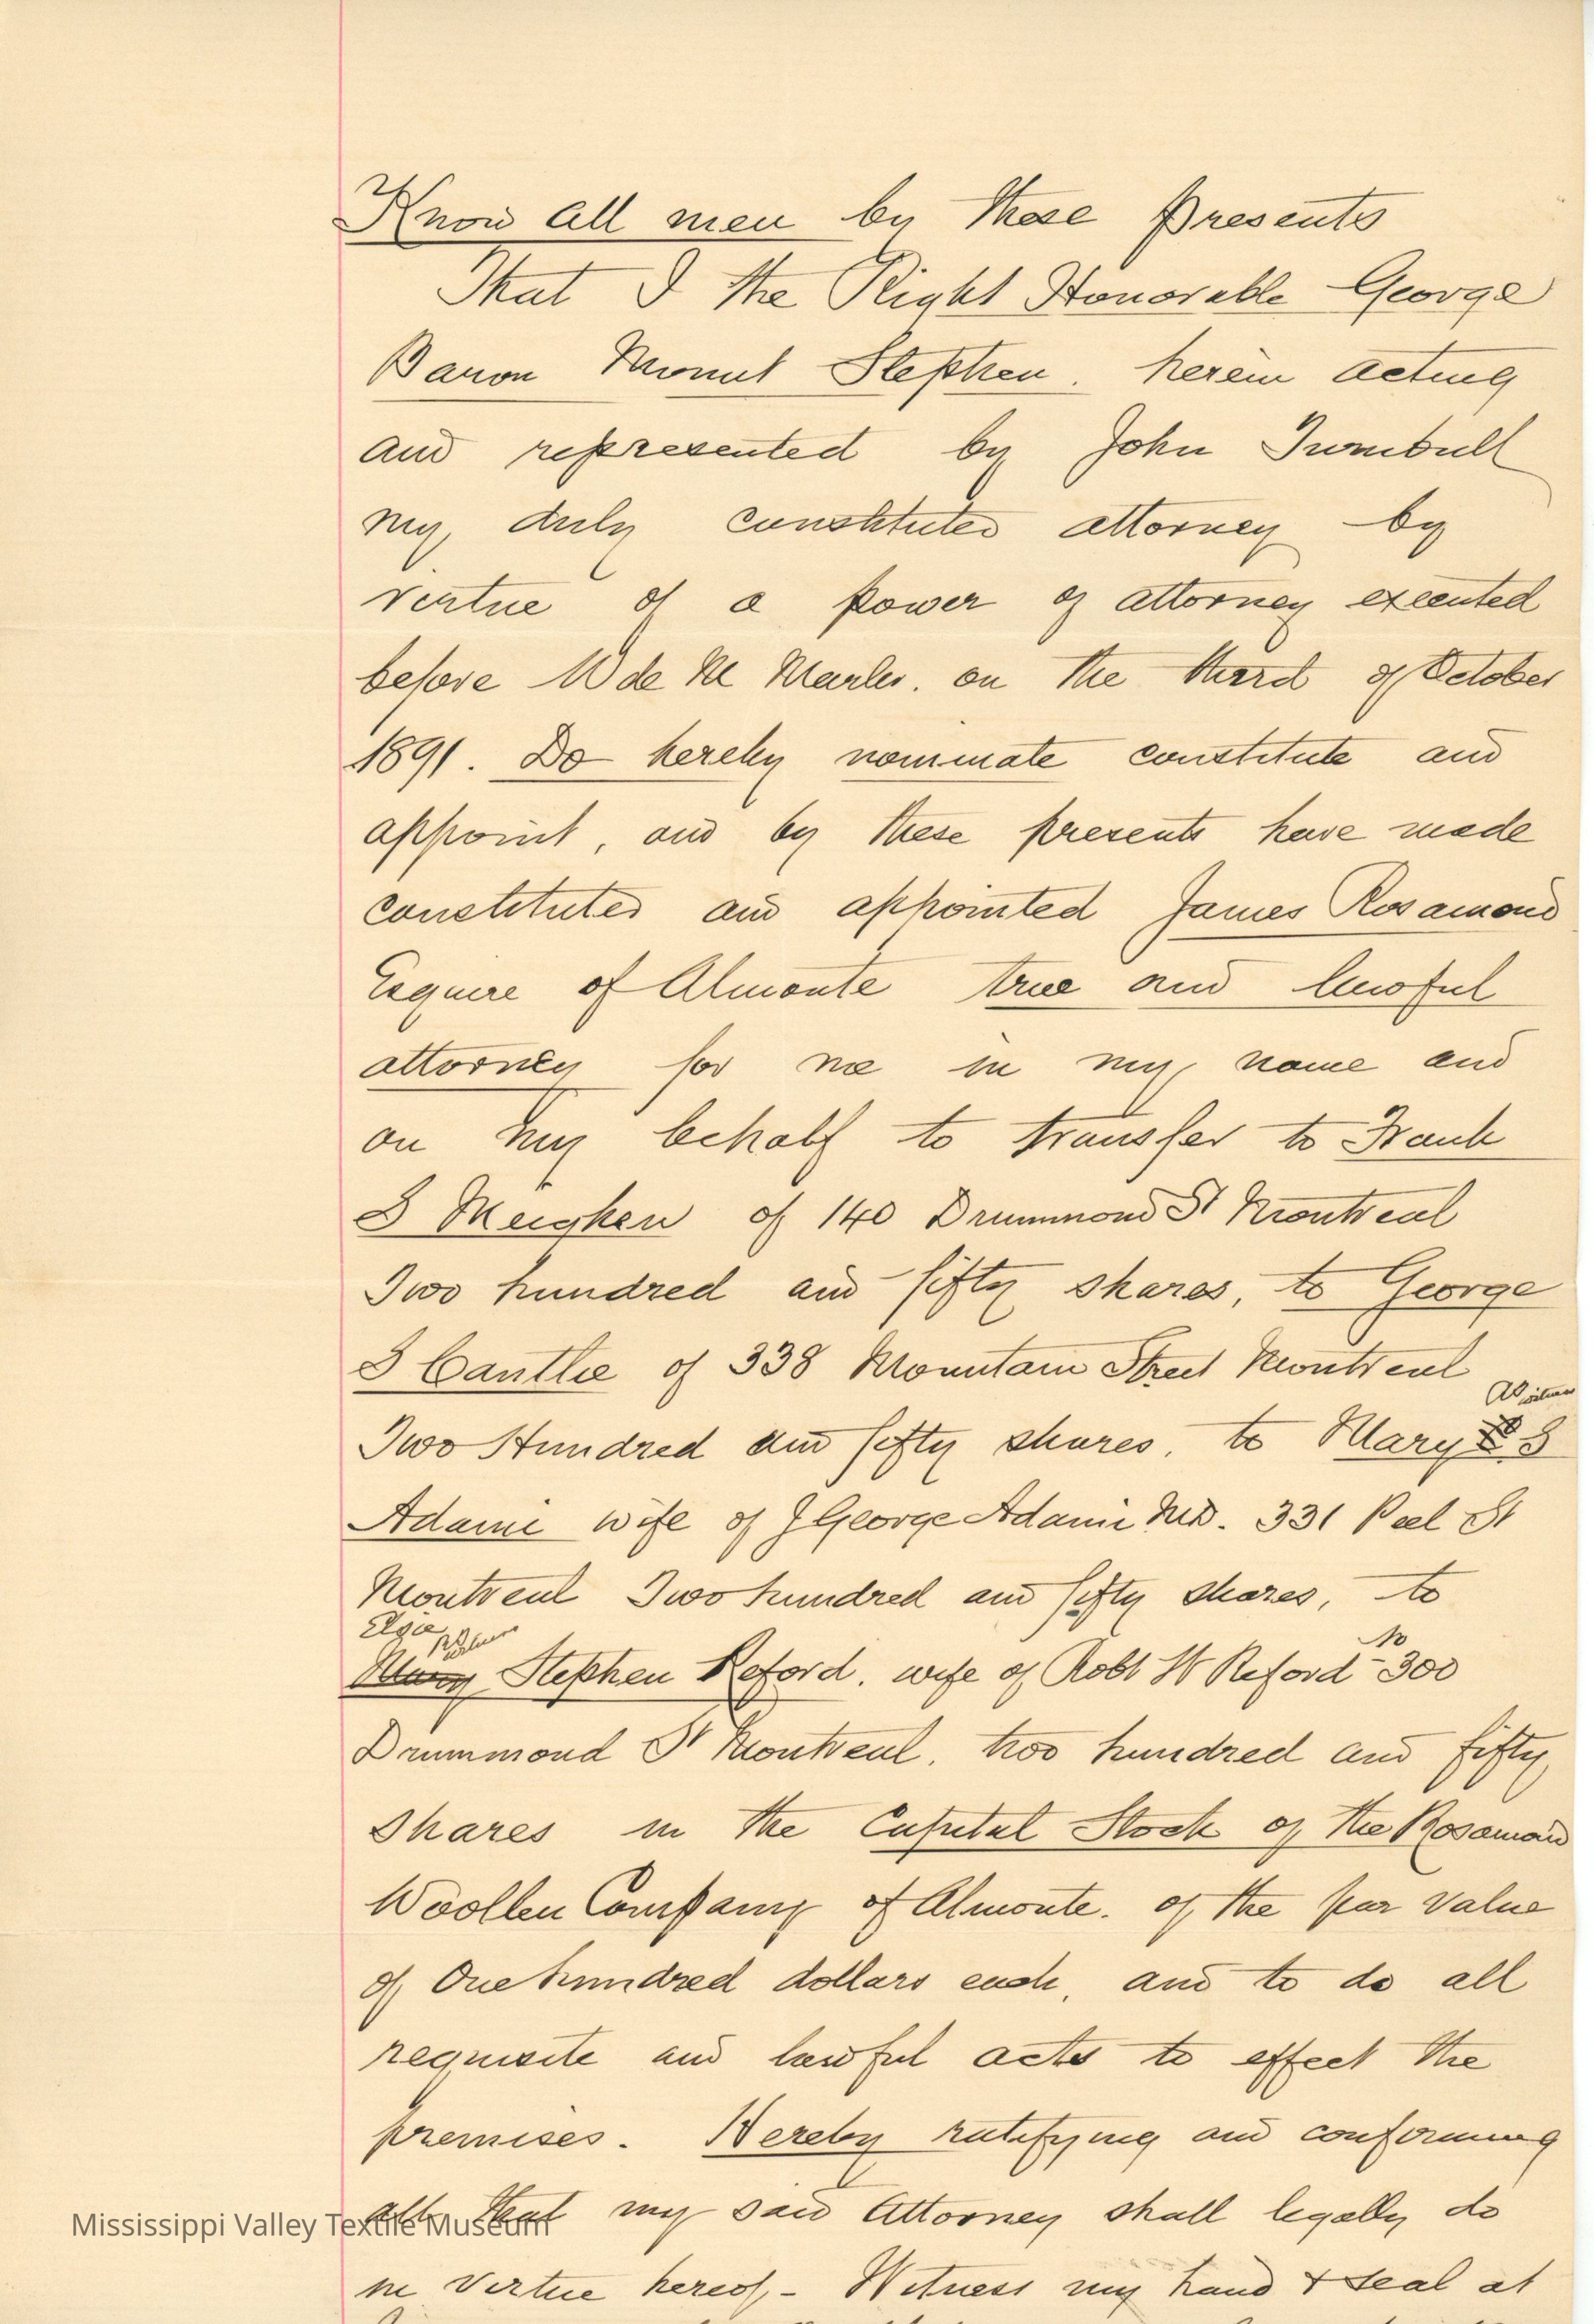 Know all men by these Presents
That I the Right Honorable George
Baron Mount Stephen. herein acting
and represented by John Turnbull
my duly constituted attorney by
vertue of a power of attorney executed
before W de M Marler. on the third of October
1891. Do hereby nominate constitute and
appoint, and by these presents have made
constituted and appointed James Rosamond
Esquire of Almonte true and lawful
attorney for me in my name and
on my behalf to transfer to Frank
S Meighen of 140 Drummond St Montreal
Two hundred and fifty shares, to George
S Cantlie of 338 Mountain Street Montreal
Two Hundred and fifty shares. to Mary S
Adami wife of J George Adami M.D. 331 Peel St
Montreal Two hundred and fifty shares, to
Elsie
Mary Stephen Reford. wife of Robt W Reford - No 300
Drummond St Montreal. two hundred and fifty
Shares in the Capital Stock of the Rosamond
Woollen Company of Almonte. of the par value
of One hundred dollars each, and to do all
requisite and lawful acts to effect the
premises. Hereby ratifying and confirming
all that my said Attorney shall legally do
in vertue hereof, - Witness my hand & seal at
Mississippi Valley Textile Museum